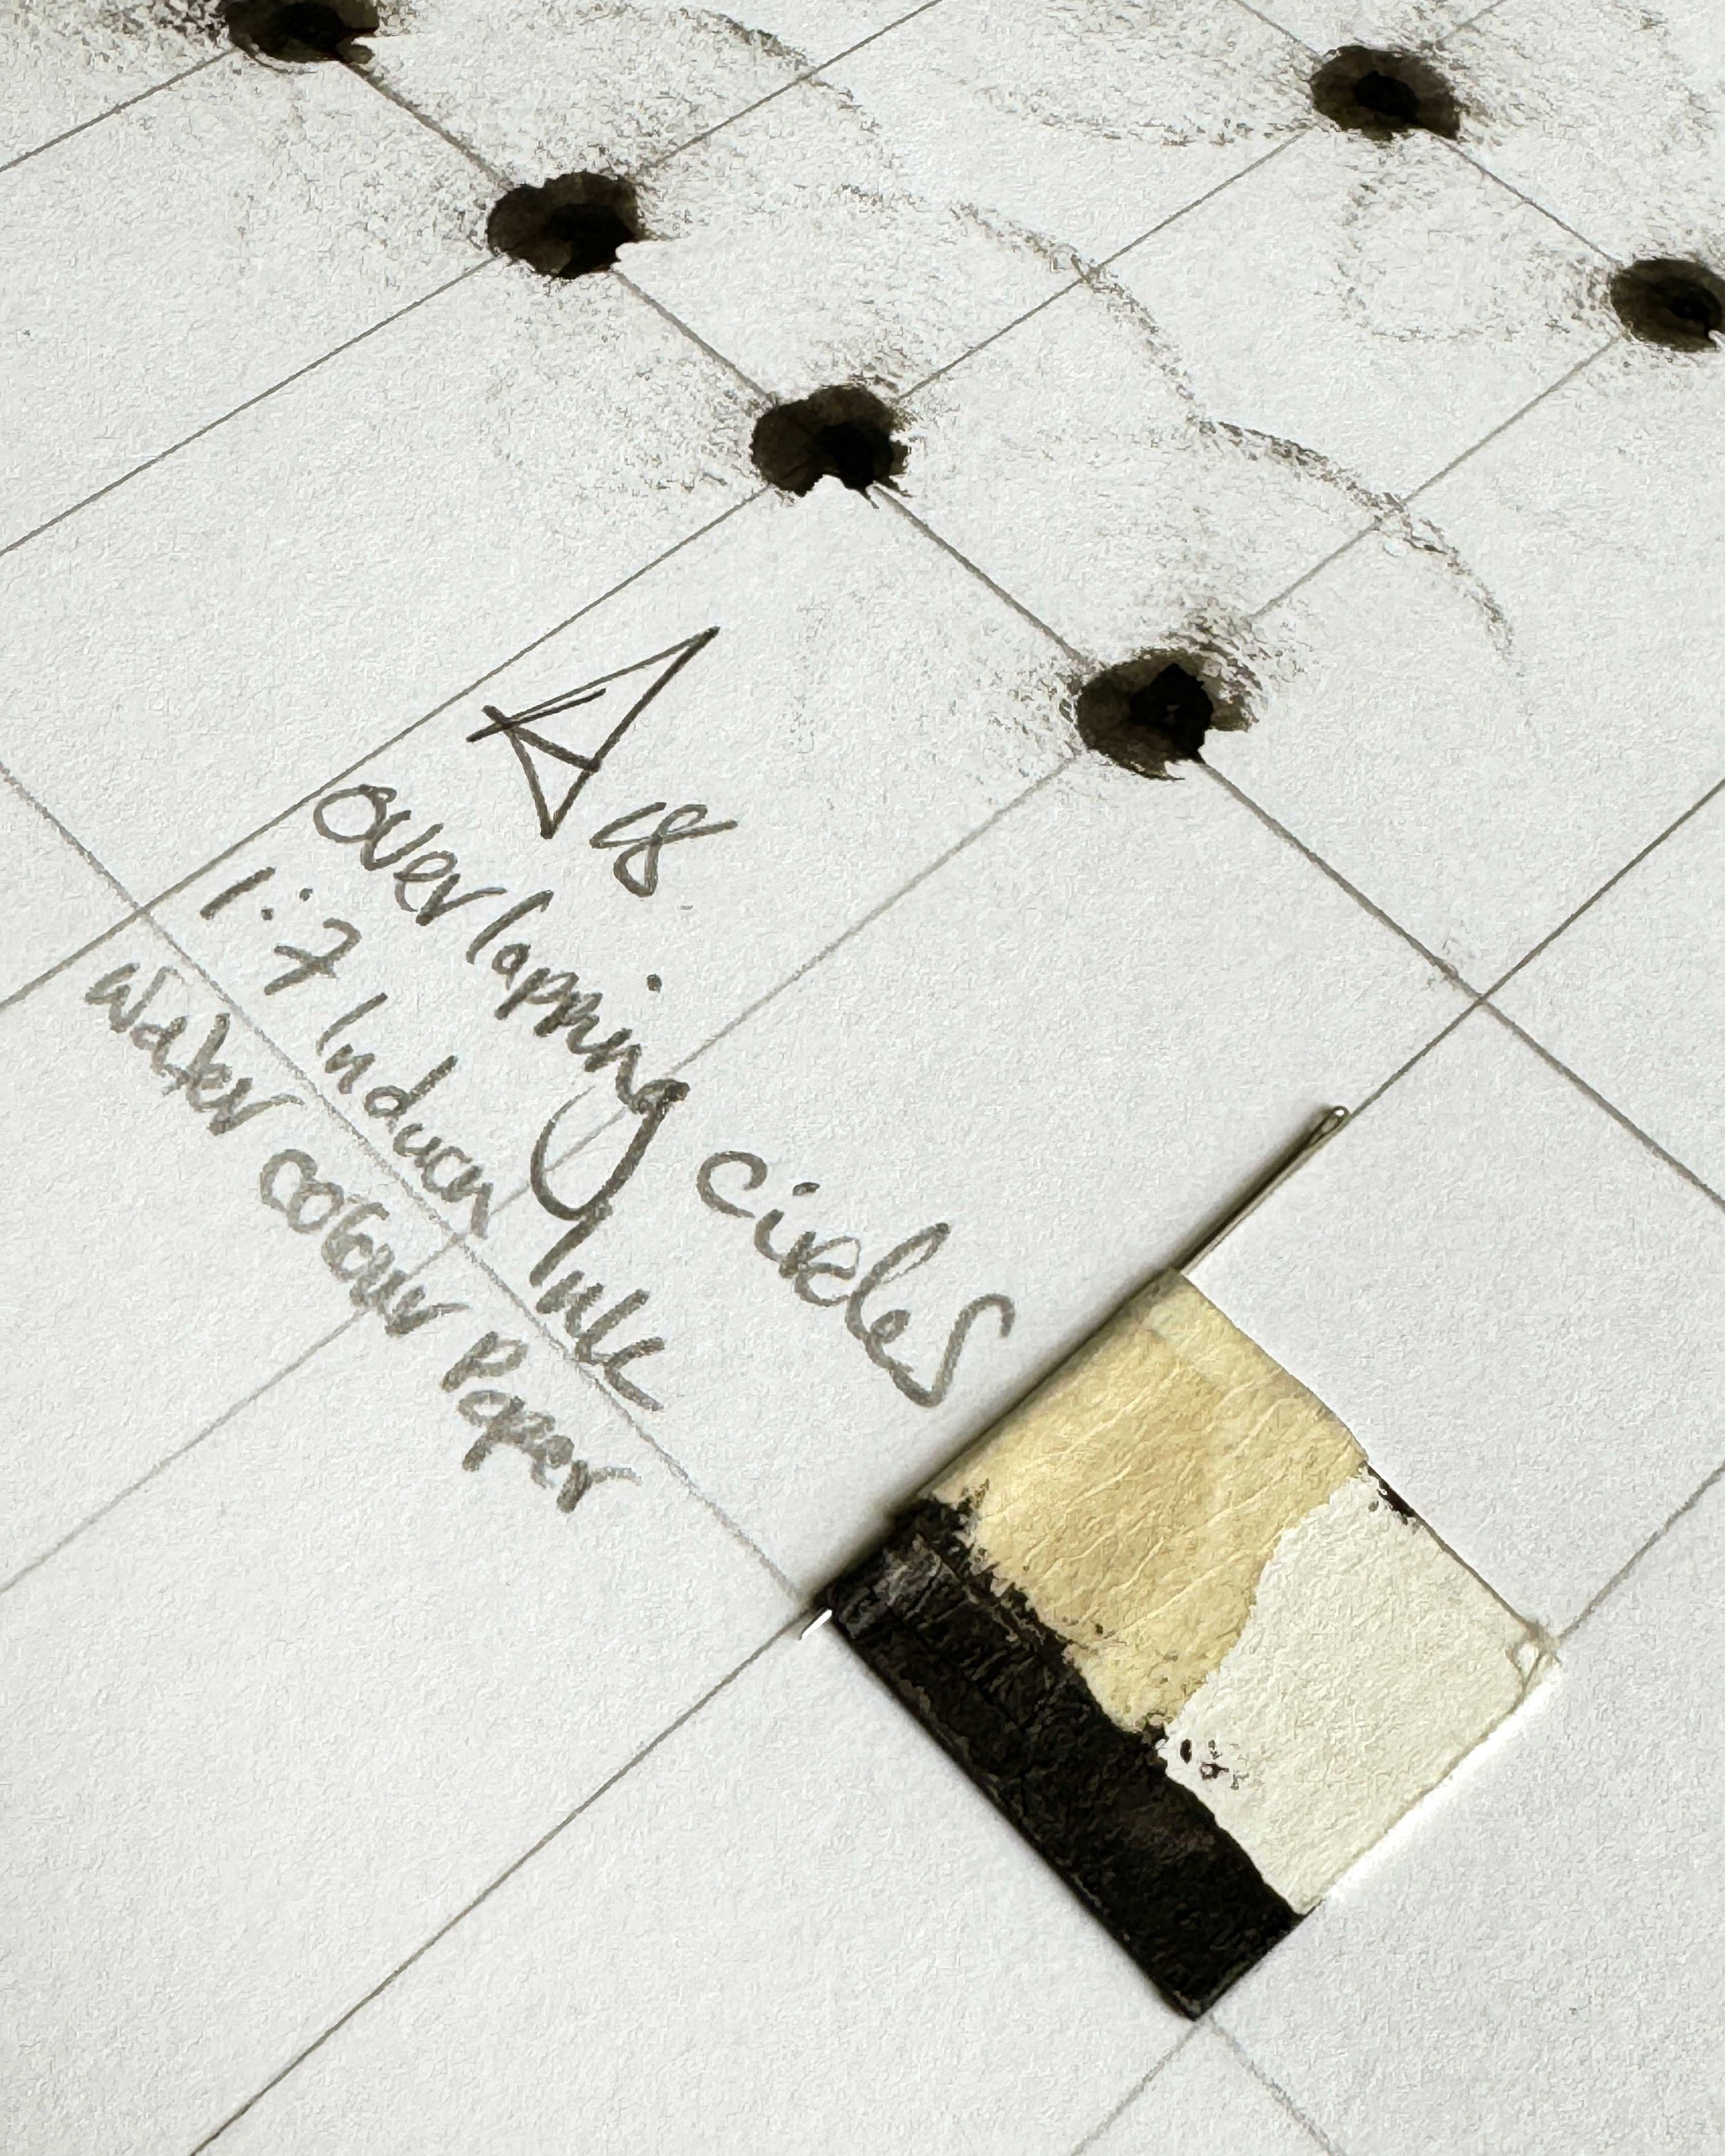 18
overlapping circles
1:7 Indian Ink
water colour Paper